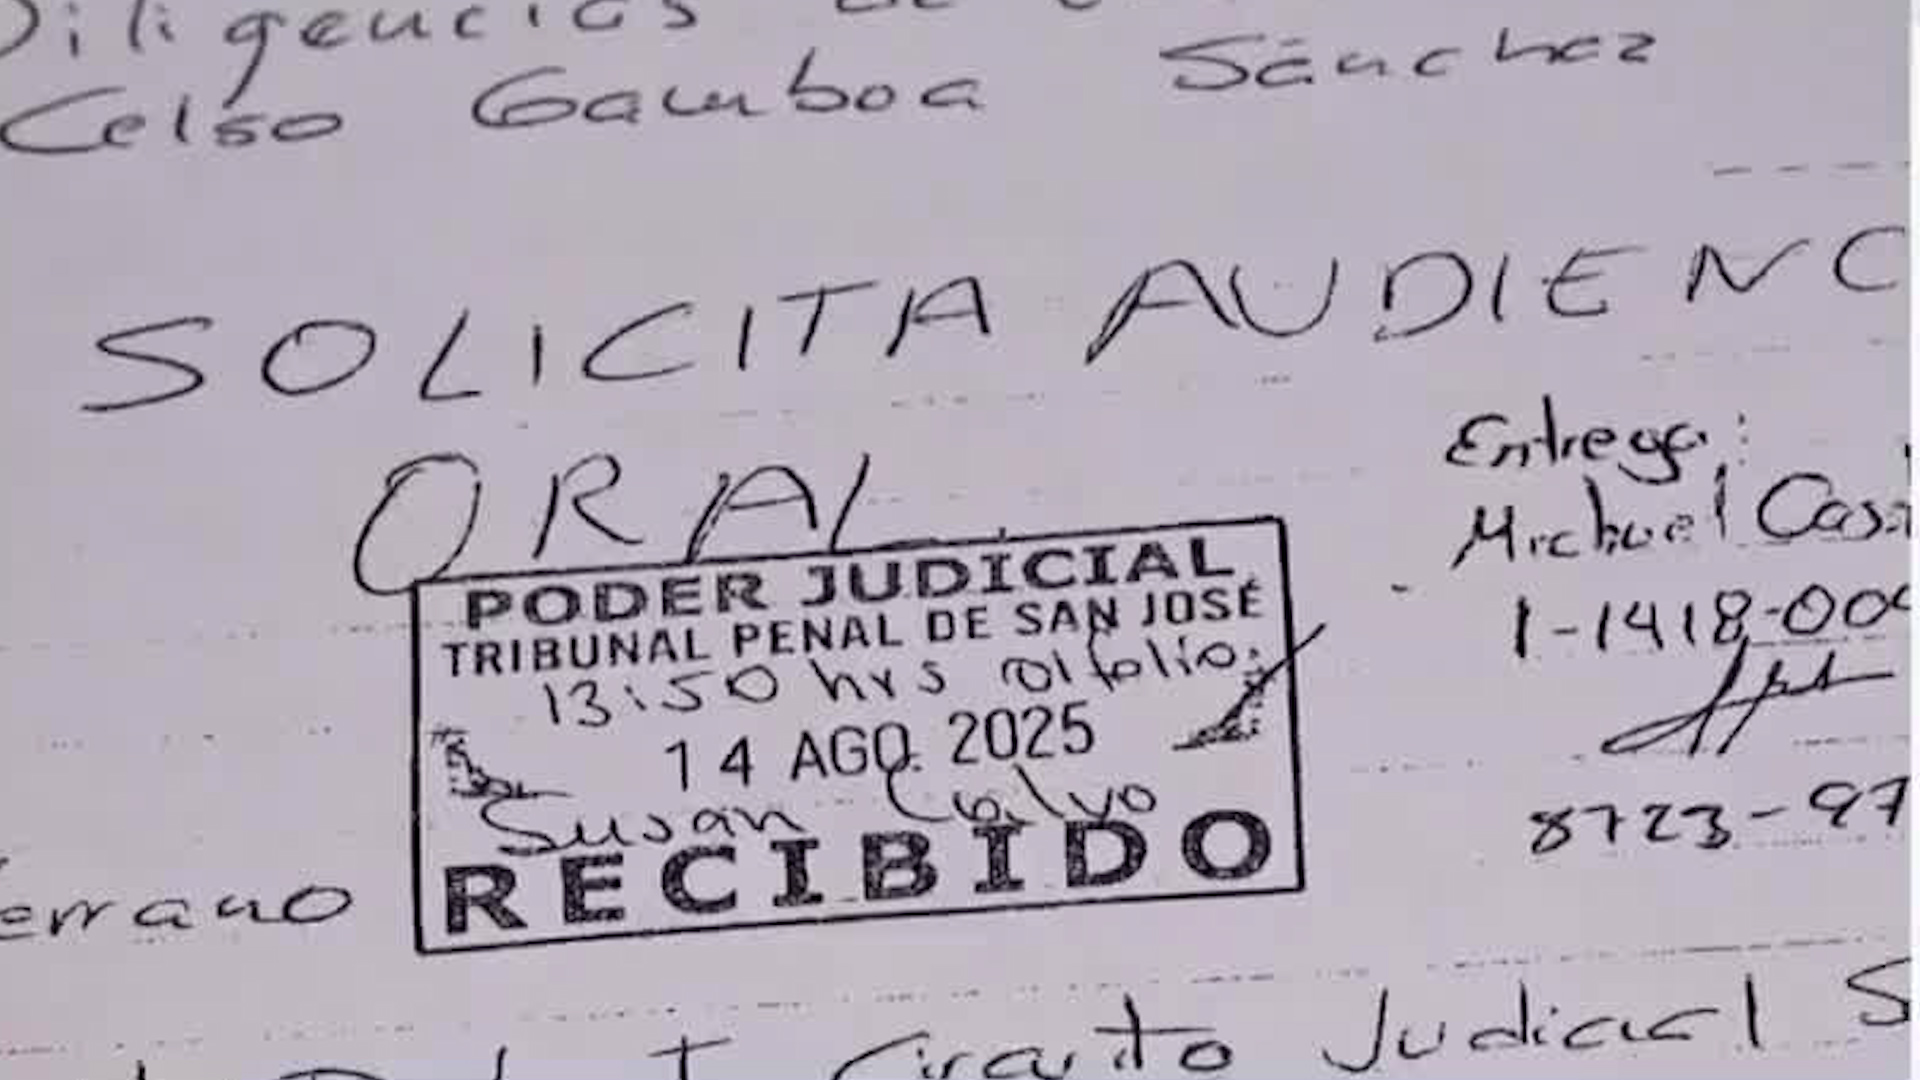 Diligencias de
Celso Gamboa Sánchez
SOLICITA AUDIENC
ORAL
Entrega:
Michael Cas
1-1418-00
8723-97
PODER JUDICIAL
TRIBUNAL PENAL DE SAN JOSÉ
13:50 hrs 01 folio.
14 AGO. 2025
Susan Calvo
RECIBIDO
errano
I Circuito Judicial S